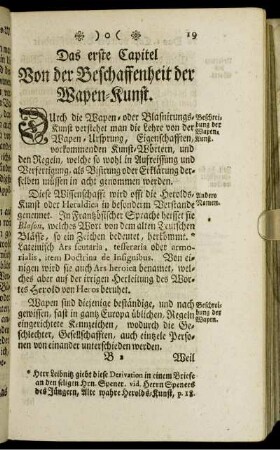 )o( 19
Das erste Capitel
Von der Beschaffenheit der
Wapen-Kunst.
DUrch die Wapen- oder Blasnirungs-
Kunst verstehet man die Lehre von der
Wapen-Ursprung, Eigenschafften,
vorkommenden Kunst-Wörtern, und
den Regeln, welche so wohl in Aufreissung und
Verfertigung, als Visirung oder Erklärung der-
selben müssen in acht genommen werden.
Beschrei-
bung der
Wapen-
Kunst.
Diese Wissenschafft wird offt die Herolds-
Kunst oder Heraldica in besonderm Verstande
genennet. In Frantzösischer Sprache heisset sie
Blason, welches Wort von dem alten Teutschen
Blässe, so ein Zeichen bedeutet, herkömmt. *
Lateinisch Ars scutaria, tesseraria oder armo-
rialis, item Doctrina de Insignibus. Von ei-
nigen wird sie auch Ars heroica benamet, wel-
ches aber auf der irrigen Herleitung des Wor-
tes Herold von Heros beruhet.
Andere
Namen.
Wapen sind diejenige beständige, und nach
gewissen, fast in gantz Europa üblichen, Regeln
eingerichtete Kennzeichen, wodurch die Ge-
schlechter, Gesellschafften, auch eintzele Perso-
nen von einander unterschieden werden.
Beschrei-
bung der
Wapen.
B 2 Weil
* Herr Leibnitz giebt diese Derivation in einem Briefe
an den seligen Hrn. Spener. vid. Herrn Speners
des Jüngern, Alte wahre Herolds-Kunst, p. 18.